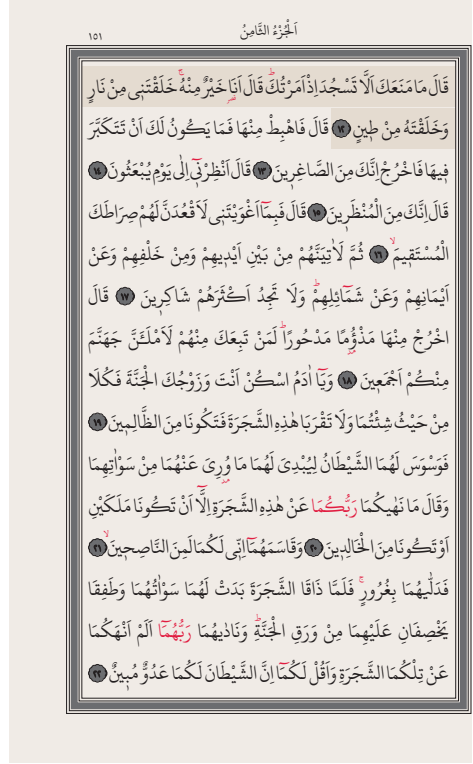 اَلْجُزْءُ الثَّامِنُ
١٥١
قَالَ مَا مَنَعَكَ اَلَّا تَسْجُدَ اِذْ اَمَرْتُكَۜ قَالَ اَنَا۬ خَيْرٌ مِنْهُۚ خَلَقْتَنٖى مِنْ نَارٍ
وَخَلَقْتَهُ مِنْ طٖينٍ ﴿١٢﴾ قَالَ فَاهْبِطْ مِنْهَا فَمَا يَكُونُ لَكَ اَنْ تَتَكَبَّرَ
فٖيهَا فَاخْرُجْ اِنَّكَ مِنَ الصَّاغِرٖينَ ﴿١٣﴾ قَالَ اَنْظِرْنٖٓى اِلٰى يَوْمِ يُبْعَثُونَ ﴿١٤﴾
قَالَ اِنَّكَ مِنَ الْمُنْظَرٖينَ ﴿١٥﴾ قَالَ فَبِمَٓا اَغْوَيْتَنٖى لَاَقْعُدَنَّ لَهُمْ صِرَاطَكَ
الْمُسْتَقٖيمَۙ ﴿١٦﴾ ثُمَّ لَاٰتِيَنَّهُمْ مِنْ بَيْنِ اَيْدٖيهِمْ وَمِنْ خَلْفِهِمْ وَعَنْ
اَيْمَانِهِمْ وَعَنْ شَمَٓائِلِهِمْۜ وَلَا تَجِدُ اَكْثَرَهُمْ شَاكِرٖينَ ﴿١٧﴾ قَالَ
اخْرُجْ مِنْهَا مَذْؤُ۫مًا مَدْحُورًاۜ لَمَنْ تَبِعَكَ مِنْهُمْ لَاَمْلَـَٔنَّ جَهَنَّمَ
مِنْكُمْ اَجْمَعٖينَ ﴿١٨﴾ وَيَٓا اٰدَمُ اسْكُنْ اَنْتَ وَزَوْجُكَ الْجَنَّةَ فَكُلَا
مِنْ حَيْثُ شِئْتُمَا وَلَا تَقْرَبَا هٰذِهِ الشَّجَرَةَ فَتَكُونَا مِنَ الظَّالِمٖينَ ﴿١٩﴾
فَوَسْوَسَ لَهُمَا الشَّيْطَانُ لِيُبْدِىَ لَهُمَا مَا وُ۫رِىَ عَنْهُمَا مِنْ سَوْاٰتِهِمَا
وَقَالَ مَا نَهٰيكُمَا رَبُّكُمَا عَنْ هٰذِهِ الشَّجَرَةِ اِلَّٓا اَنْ تَكُونَا مَلَكَيْنِ
اَوْ تَكُونَا مِنَ الْخَالِدٖينَ ﴿٢٠﴾ وَقَاسَمَهُمَٓا اِنّٖى لَكُمَا لَمِنَ النَّاصِحٖينَۙ ﴿٢١﴾
فَدَلّٰيهُمَا بِغُرُورٍۚ فَلَمَّا ذَاقَا الشَّجَرَةَ بَدَتْ لَهُمَا سَوْاٰتُهُمَا وَطَفِقَا
يَخْصِفَانِ عَلَيْهِمَا مِنْ وَرَقِ الْجَنَّةِۜ وَنَادٰيهُمَا رَبُّهُمَٓا اَلَمْ اَنْهَكُمَا
عَنْ تِلْكُمَا الشَّجَرَةِ وَاَقُلْ لَكُمَٓا اِنَّ الشَّيْطَانَ لَكُمَا عَدُوٌّ مُبٖينٌ ﴿٢٢﴾